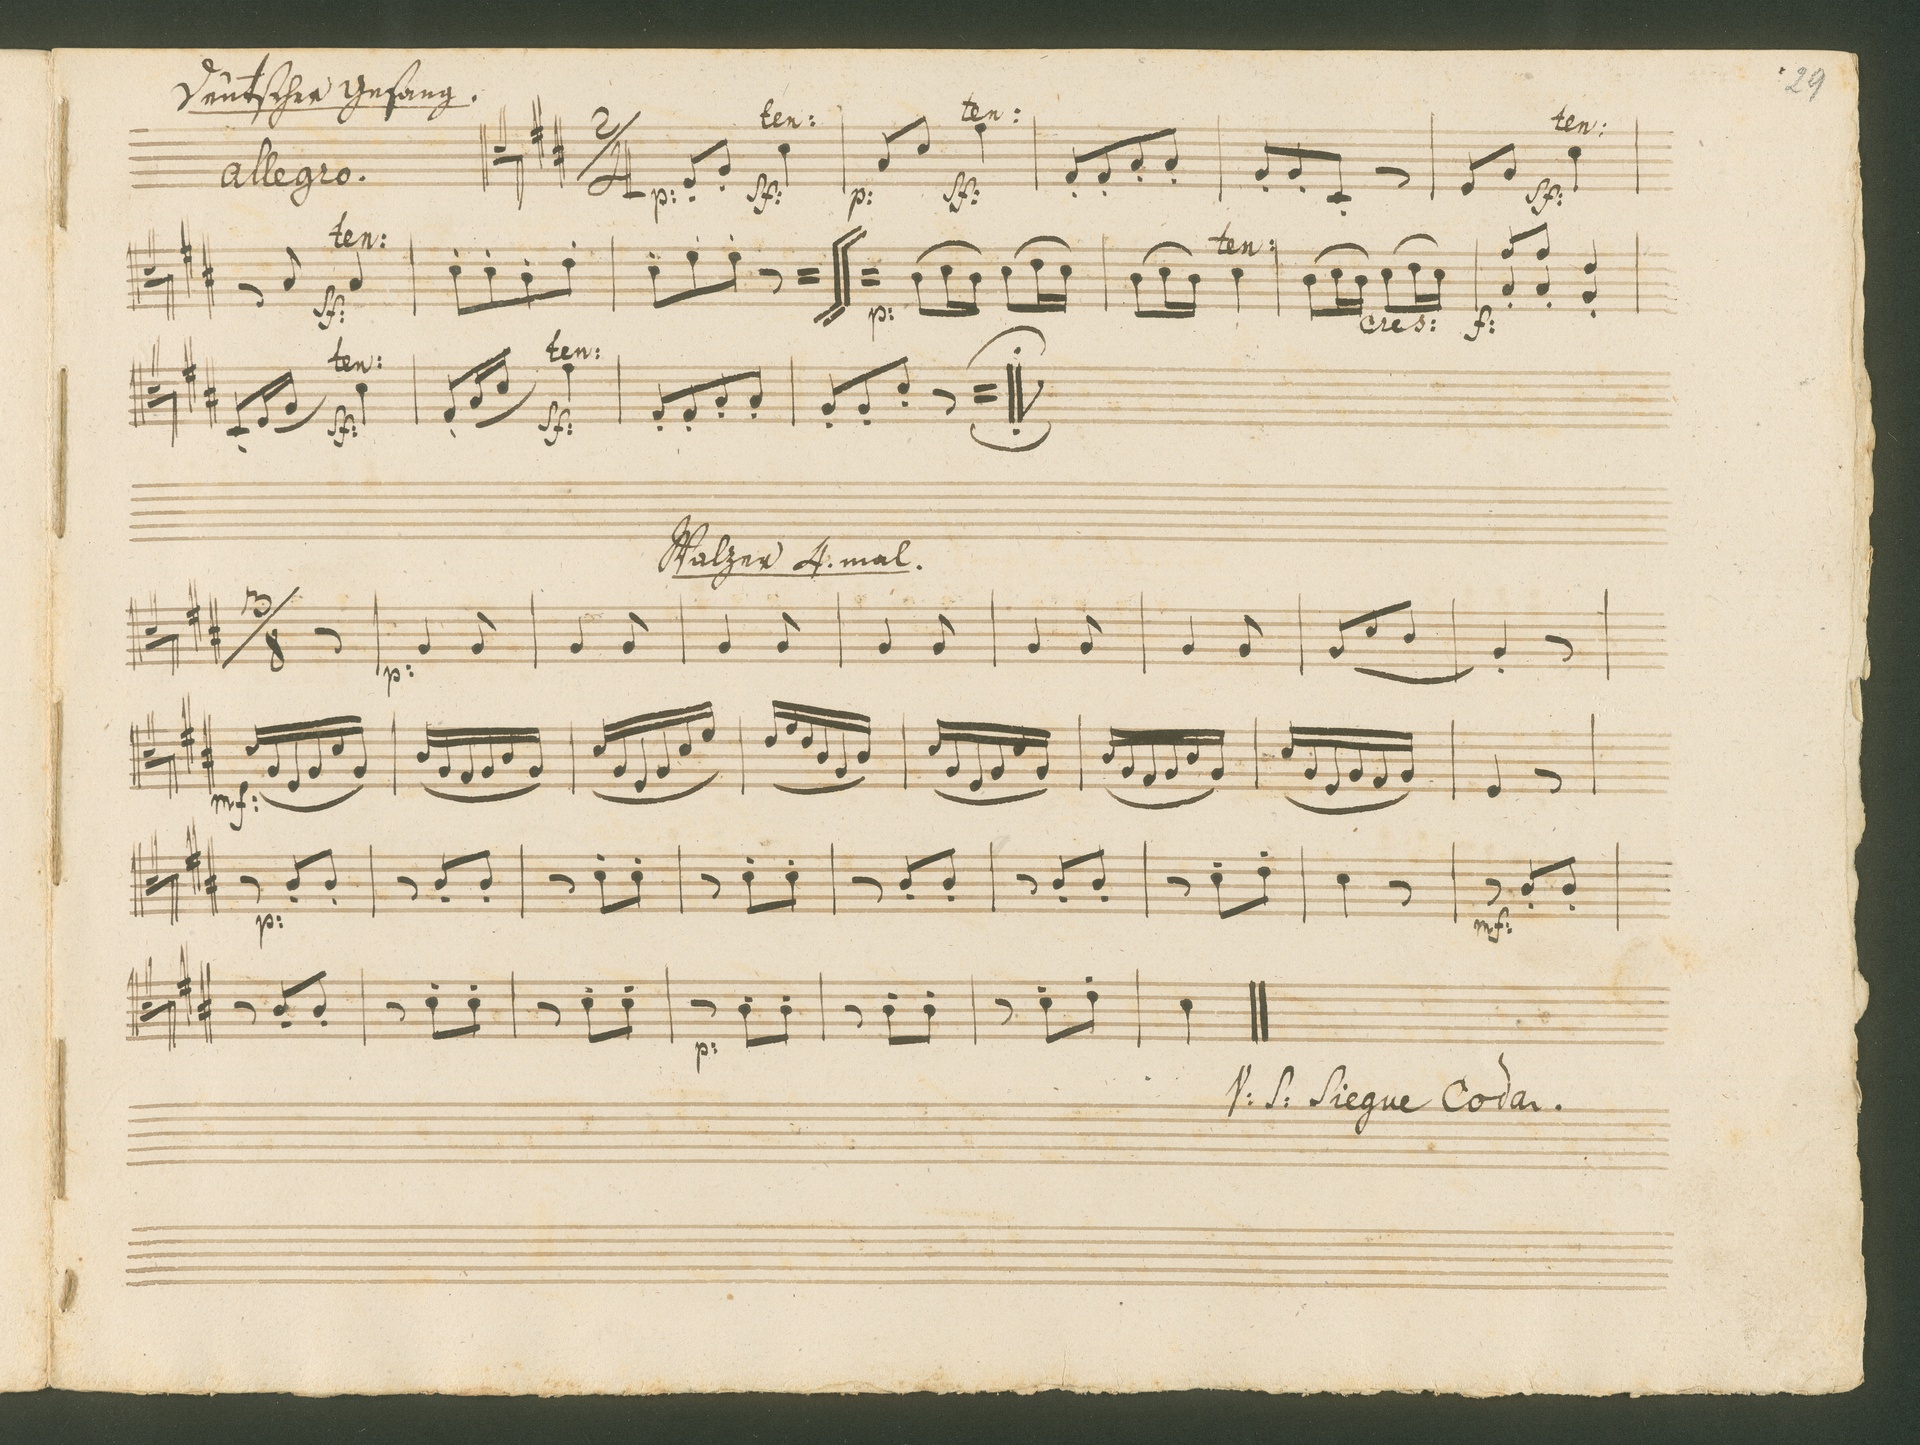 29
Deutscher Gesang.
allegro.
2/4
ten: ten: ten:
p: sf: p: sf: sf:
ten: ten:
sf: p: cres: f:
ten: ten:
sf: sf:
Walzer 4.mal.
3/8
p:
mf:
p: mf:
p:
V: S: Siegue Coda.